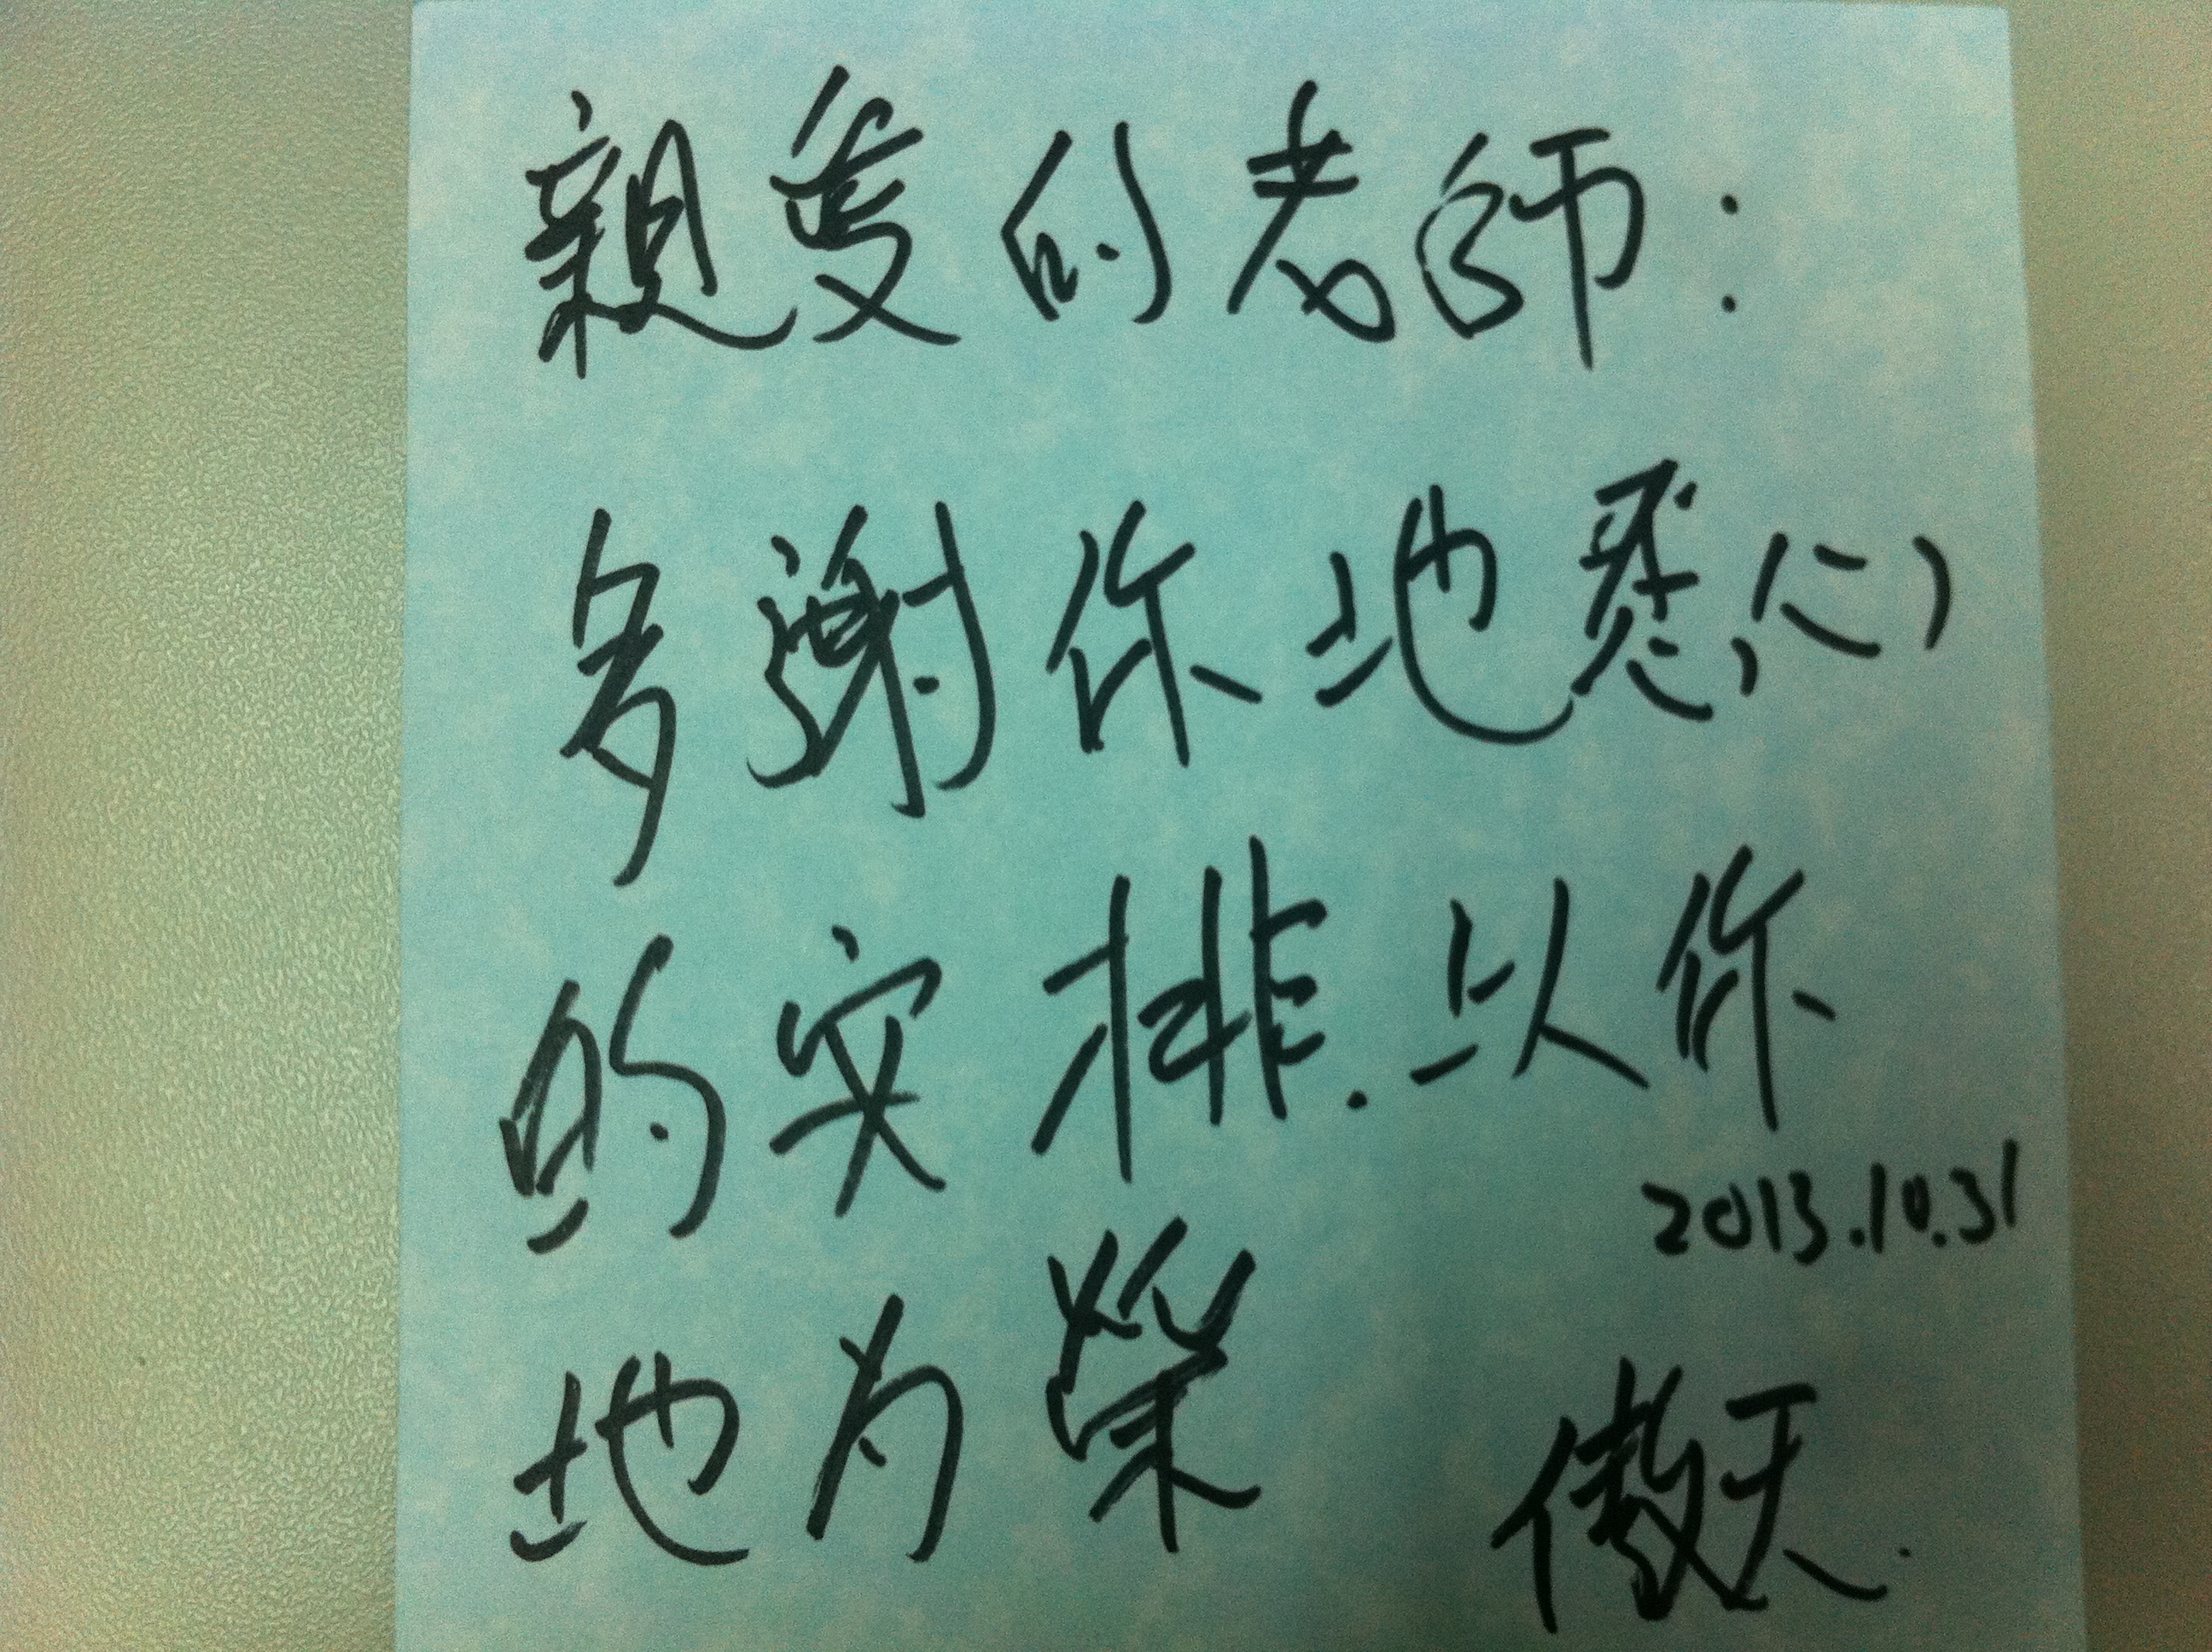 親愛的老師:
多謝你地悉心
的安排.以你
地为榮
2013.10.31
傲天.